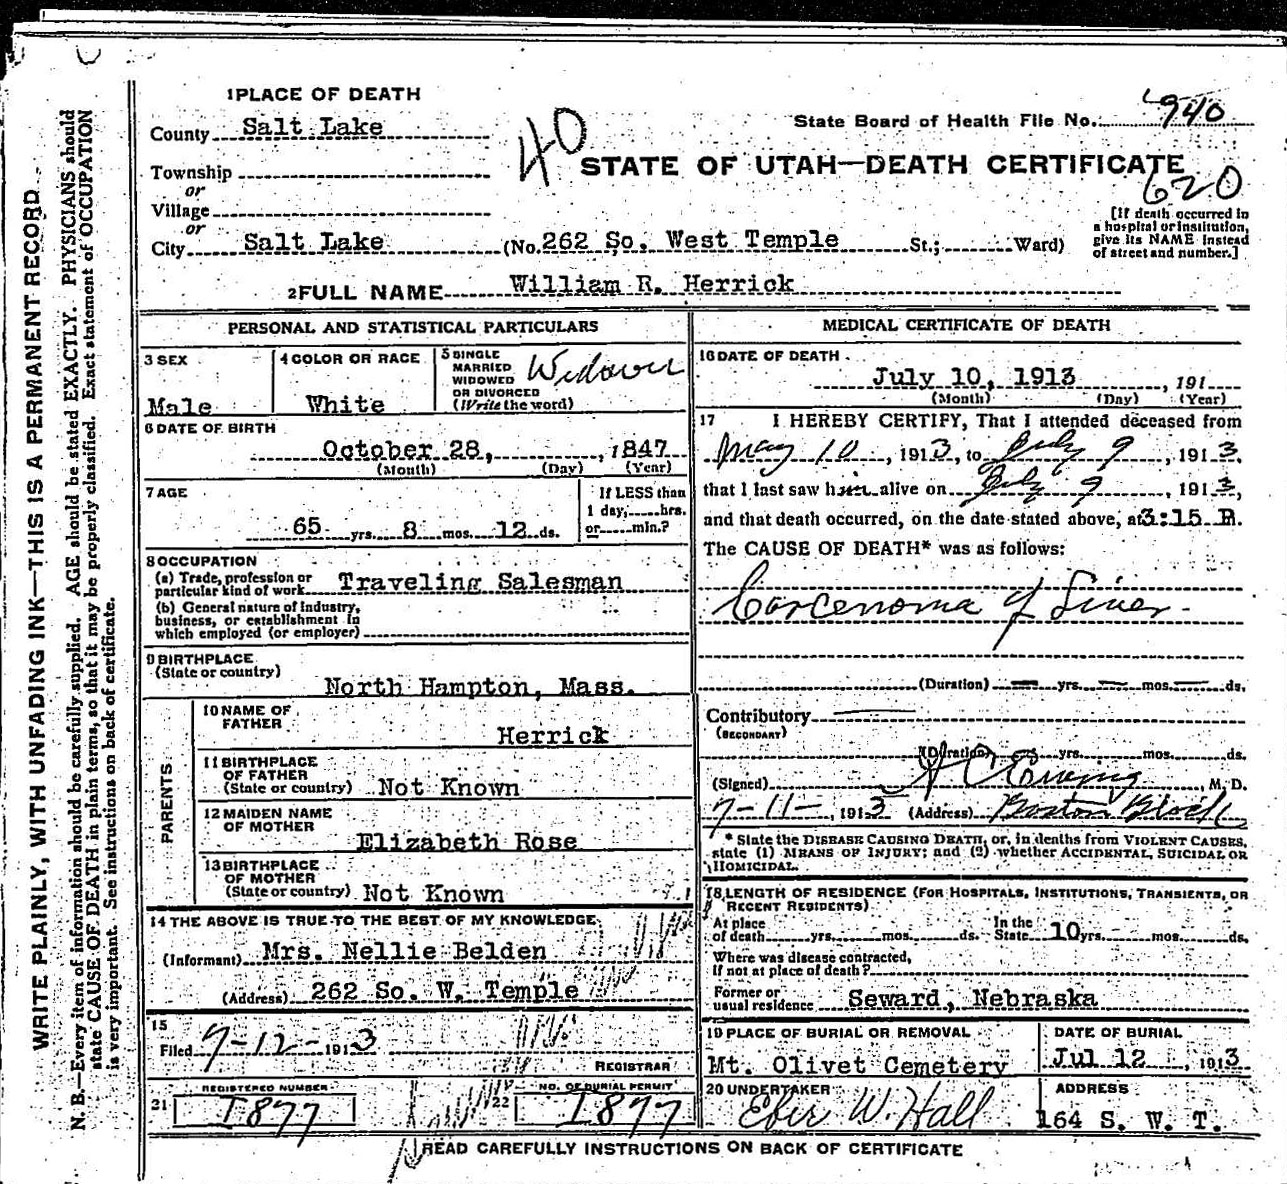 1 PLACE OF DEATH
County Salt Lake
Township
or
Village
or
City Salt Lake (No. 262 So. West Temple St.; Ward)
940
State Board of Health File No.
40
STATE OF UTAH—DEATH CERTIFICATE
620
[If death occurred in
a hospital or institution,
give its NAME instead
of street and number.]
2 FULL NAME William R. Herrick
PERSONAL AND STATISTICAL PARTICULARS
3 SEX
Male
4 COLOR OR RACE
White
5 SINGLE
MARRIED
WIDOWED
OR DIVORCED
(Write the word)
Widower
6 DATE OF BIRTH
October 28, , 1847
(Month) (Day) (Year)
7 AGE
65 yrs. 8 mos. 12 ds.
If LESS than
1 day, hrs.
or min.?
8 OCCUPATION
(a) Trade, profession or
particular kind of work Traveling Salesman
(b) General nature of industry,
business, or establishment in
which employed (or employer)
9 BIRTHPLACE
(State or country)
North Hampton, Mass.
PARENTS
10 NAME OF
FATHER
Herrick
11 BIRTHPLACE
OF FATHER
(State or country) Not Known
12 MAIDEN NAME
OF MOTHER
Elizabeth Rose
13 BIRTHPLACE
OF MOTHER
(State or country) Not Known
14 THE ABOVE IS TRUE TO THE BEST OF MY KNOWLEDGE
(Informant) Mrs. Nellie Belden
(Address) 262 So. W. Temple
15
Filed 7-12- 1913
REGISTRAR
REGISTERED NUMBER
21 1877
NO. OF BURIAL PERMIT
22 1877
MEDICAL CERTIFICATE OF DEATH
16 DATE OF DEATH
July 10, 1913 , 191
(Month) (Day) (Year)
17 I HEREBY CERTIFY, That I attended deceased from
May 10 , 1913, to July 9 , 1913,
that I last saw him alive on July 9 , 1913,
and that death occurred, on the date stated above, at 3:15 P.
The CAUSE OF DEATH* was as follows:
Carcenoma of Liver
(Duration) — yrs. — mos. — ds.
Contributory
(SECONDARY)
(Duration) yrs. mos. ds.
(Signed) A C Ewing, M. D.
7-11-, 1913 (Address) Boston Block
* State the DISEASE CAUSING DEATH, or, in deaths from VIOLENT CAUSES,
state (1) MEANS OF INJURY; and (2) whether ACCIDENTAL, SUICIDAL OR
HOMICIDAL.
18 LENGTH OF RESIDENCE (FOR HOSPITALS, INSTITUTIONS, TRANSIENTS, OR
RECENT RESIDENTS)
At place
of death yrs. mos. ds.
In the
State 10 yrs. mos. ds.
Where was disease contracted,
if not at place of death?
Former or
usual residence Seward, Nebraska
19 PLACE OF BURIAL OR REMOVAL
Mt. Olivet Cemetery
DATE OF BURIAL
Jul 12 , 1913
20 UNDERTAKER
Eber W. Hall
ADDRESS
164 S. W. T.
READ CAREFULLY INSTRUCTIONS ON BACK OF CERTIFICATE
WRITE PLAINLY, WITH UNFADING INK—THIS IS A PERMANENT RECORD
N. B.—Every item of information should be carefully supplied. AGE should be stated EXACTLY. PHYSICIANS should
state CAUSE OF DEATH in plain terms, so that it may be properly classified. Exact statement of OCCUPATION
is very important. See instructions on back of certificate.